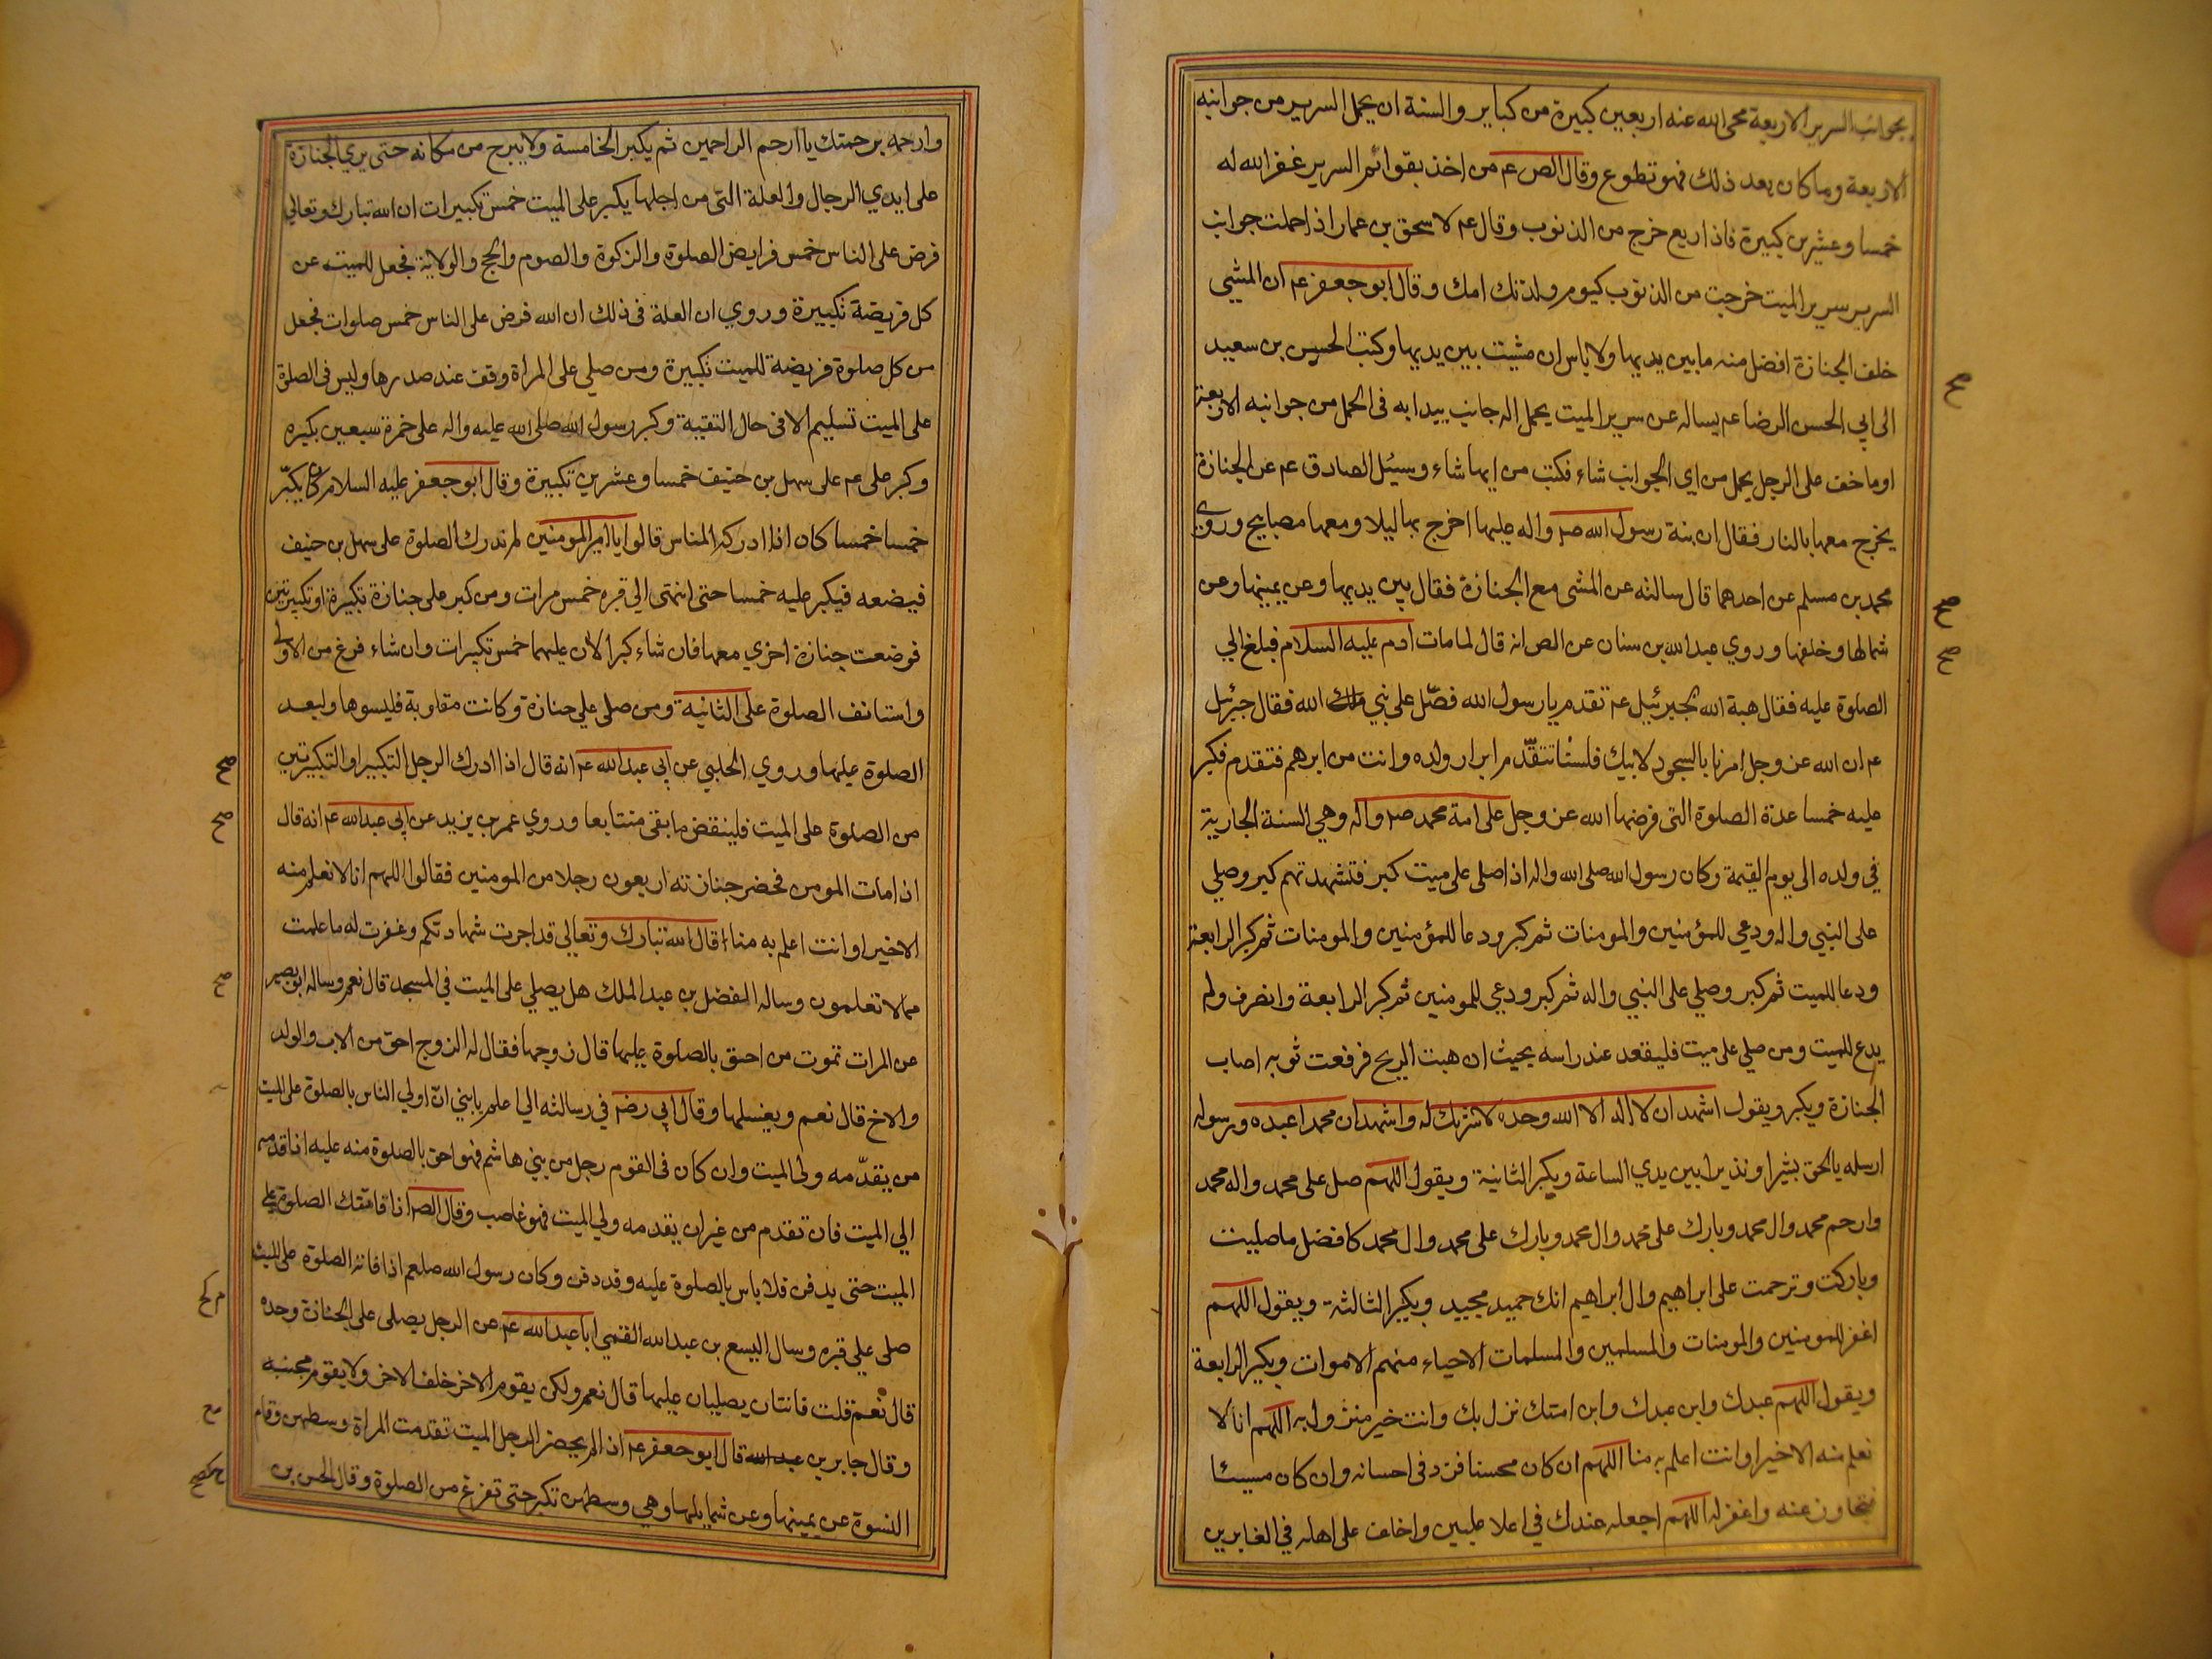 بجوانب السرير الاربعة محى الله عنه اربعين كبيرة من كباير والسنة ان يحمل السرير من جوانبه
الاربعة وما كان بعد ذلك فهو تطوع وقال الص عم من اخذ بقوائم السرير غفر الله له
خمسا وعشرين كبيرة فاذا ربع خرج من الذنوب وقال عم لاسحق بن عمار اذا حملت جوانب
السرير سرير الميت خرجت من الذنوب كيوم ولدتك امك وقال ابو جعفر عم ان المشي
خلف الجنازة افضل منه ما بين يديها ولا باس ان مشيت بين يديها وكتب الحسين بن سعيد
الى ابي الحسن الرضا عم يساله عن سرير الميت يحمل اله جانب يبدا به في الحمل من جوانبه الاربعة
او ما خف على الرجل يحمل من اي الجوانب شاء فكتب من ايها شاء وسئيل الصادق عم عن الجنازة
يخرج معها بالنار فقال ان بنة رسول الله صم واله عليها اخرج بها ليلا ومعها مصابيح وروي
محمد بن مسلم عن احدهما قال سالته عن المشى مع الجنازة فقال بين يديها وعن يمينها وعن
شمالها وخلفها وروي عبد الله بن سنان عن الص انه قال لما مات ادم عليه السلام فبلغ الي
الصلوة عليه فقال هبة الله لجبرئيل عم تقدم يا رسول الله فصّل على نبي الله فقال جبرئيل
عم ان الله عز وجل امرنا بالسجود لابيك فلسنا نتقدّم ابرار ولده وانت من ابرهم فتقدم فكبر
عليه خمسا عدة الصلوة التي فرضها الله عز وجل على امة محمد صم واله وهي السنة الجارية
في ولده الى يوم القيمة وكان رسول الله صلى الله واله اذا صلى على ميت كبر فتشهد ثم كبر وصلي
على النبي واله ودعي للمؤمنين والمومنات ثم كبر ودعا للمؤمنين والمومنات ثم كبر الرابعة
ودعا للميت ثم كبر وصلي على النبي واله ثم كبر ودعي للمومنين ثم كبر الرابعة وانصرف ولم
يدع للميت ومن صلي على ميت فليقعد عند راسه بحيث ان هبت الريح فرفعت ثوبه اصاب
الجنازة ويكبر ويقول اشهد ان لا اله الا الله وحده لا شريك له واشهد ان محمدا عبده ورسوله
ارسله بالحق بشيرا ونذيرا بين يدي الساعة ويكبر الثانية ويقول اللهم صل على محمد واله محمد
وارحم محمد وال محمد وبارك على محمد وال محمد وبارك على محمد وال محمد كافضل ما صليت
وباركت وترحمت على ابراهيم وال ابراهيم انك حميد مجيد ويكبر الثالثة ويقول اللهم
اغفر للمومنين والمومنات والمسلمين والمسلمات الاحياء منهم الاموات ويكبر الرابعة
ويقول اللهم عبدك وابن عبدك وابن امتك نزل بك وانت خير منزول به اللهم انا لا
نعلم منه الا خيرا وانت اعلم به منا اللهم ان كان محسنا فزد في احسانه وان كان مسيئا
فتجاوز عنه واغفر له اللهم اجعله عندك في اعلا عليين واخلف على اهله في الغابرين
وارحمه برحمتك يا ارحم الراحمين ثم يكبر الخامسة ولا يبرح من مكانه حتى يري الجنازة
على ايدي الرجال والعلة التي من اجلها يكبر على الميت خمس تكبيرات ان الله تبارك وتعالي
فرض على الناس خمس فرايض الصلوة والزكوة والصوم والحج والولاية فجعل للميت عن
كل فريضة تكبيرة وروي ان العلة في ذلك ان الله فرض على الناس خمس صلوات فجعل
من كل صلوة فريضة للميت تكبيرة ومن صلي على المراة وقف عند صدرها وليس في الصلوة
على الميت تسليم الا في حال التقية وكبر رسول الله صلى الله عليه واله على حمزة سبعين بكيره
وكبر على عم على سهل بن حنيف خمسا وعشرين تكبيرة وقال ابو جعفر عليه السلام يكبّر
خمسا خمسا كان اذا ادركه الناس قالوا يا امير المومنين لم ندرك الصلوة على سهل بن حنيف
فيضعه فيكبر عليه خمسا حتى انتهى الي قبره خمس مرات ومن كبر على جنازة تكبيرة او تكبيرتين
فوضعت جنازة اخري معها فان شاء كبر الان عليهما خمس تكبيرات وان شاء فرغ من الاولى
واستانف الصلوة على الثانية ومن صلى علي جنازة وكانت مقلوبة فليسوها وليعد
الصلوة عليها وروي الحلبي عن ابي عبد الله عم انه قال اذا ادرك الرجل التكبير او التكبيرتين
من الصلوة على الميت فلينقض ما بقى متتابعا وروي عمر بن يزيد عن ابي عبد الله عم انه قال
اذا مات المومن فحضر جنازته اربعون رجلا من المومنين فقالوا اللهم انا لا نعلم منه
الا خيرا وانت اعلم به منا قال الله تبارك وتعالي قد اجرت شهادتكم وغفرت له ما علمت
مما لا تعلمون وساله الفضل بن عبد الملك هل يصلي على الميت في المسجد قال نعم وساله ابو بصير
عن المرات تموت من احق بالصلوة عليها قال زوجها فقال له الزوج احق من الاب والولد
والاخ قال نعم ويغسلها وقال ابي رضه في رسالته الي اعلم يا بني ان اولي الناس بالصلوة على الميت
من يقدّمه ولى الميت وان كان في القوم رجل من بني هاشم فهو احق بالصلوة منه عليه اذا قدمه
الي الميت فان تقدم من غير ان يقدمه ولي الميت فهو غاصب وقال الصـ اذا فاتتك الصلوة على
الميت حتى يدفن فلا باس بالصلوة عليه وقد دفن وكان رسول الله صلعم اذا فاته الصلوة على الميت
صلى علي قبره وسال اليسع بن عبد الله القمي ابا عبد الله عم عن الرجل يصلى على الجنازة وحده
قال نعم قلت فاثنان يصليان عليها قال نعم ولكن يقوم الاخر خلف الاخر ولا يقوم بجنبه
وقال جابر بن عبد الله قال ابو جعفر عم اذا لم يحضر الرجل الميت تقدمت المراة وسطهن وقام
النسوة عن يمينها وعن شمايلها وهي وسطهن تكبر حتى تفرغ من الصلوة وقال الحسن بن